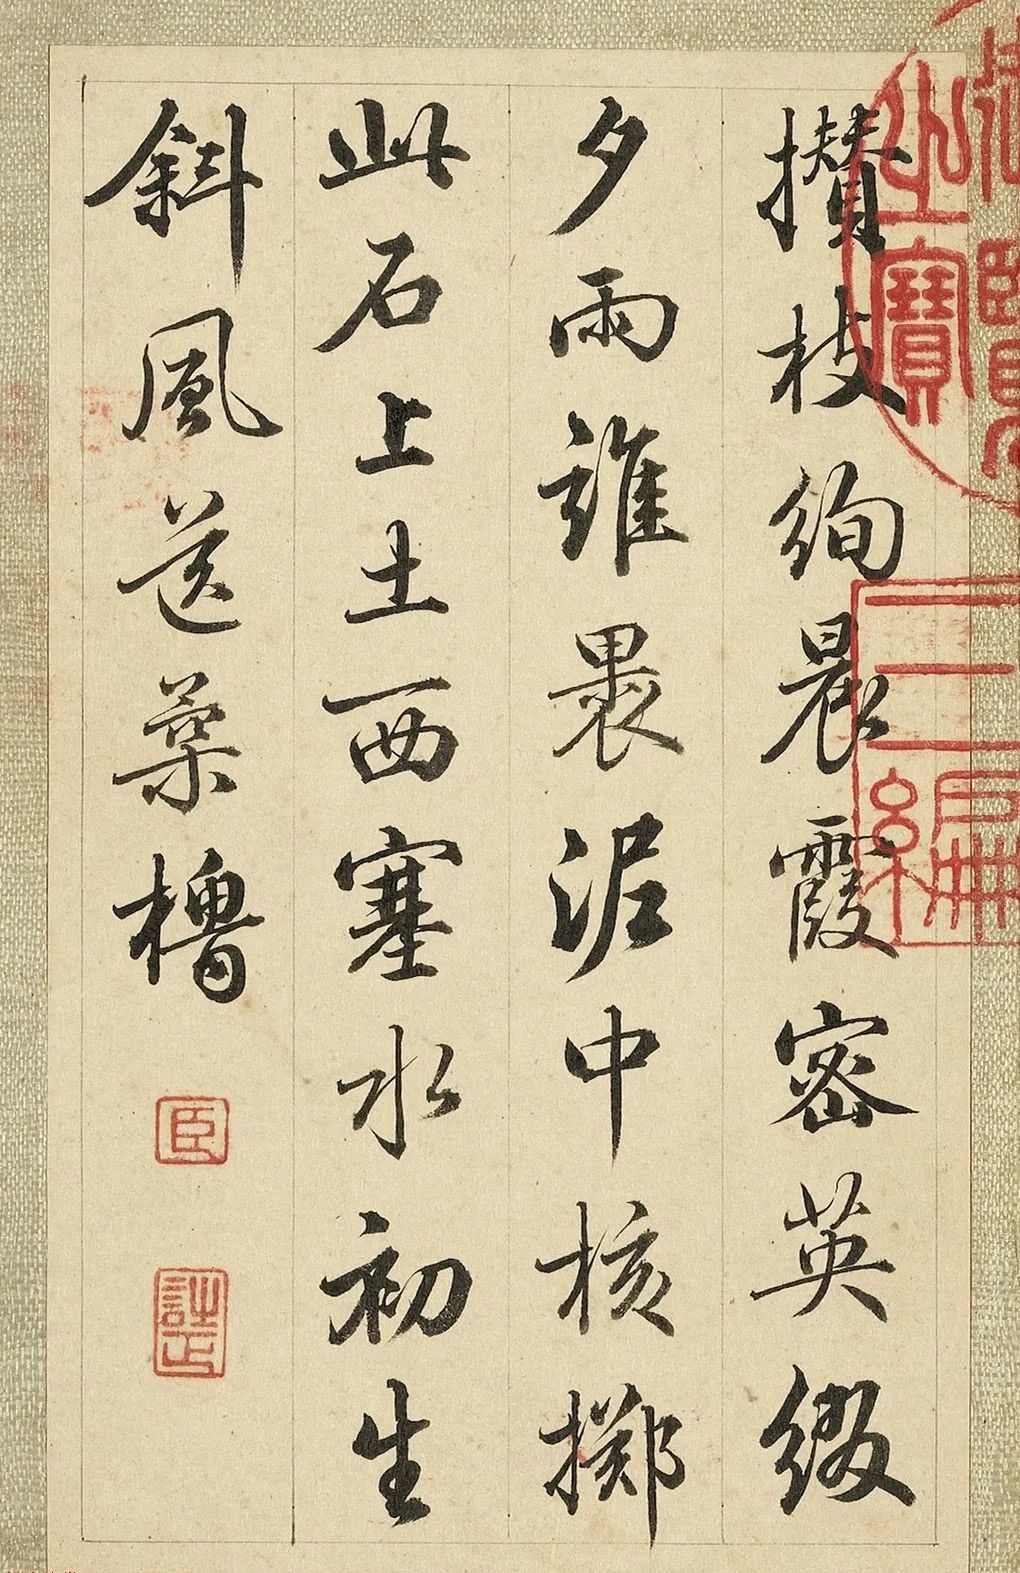 攢枝絢晨霞密英綴
夕雨誰畏泥中核擲
此石上土西塞水初生
斜風送藥櫓
臣
之寶
三編